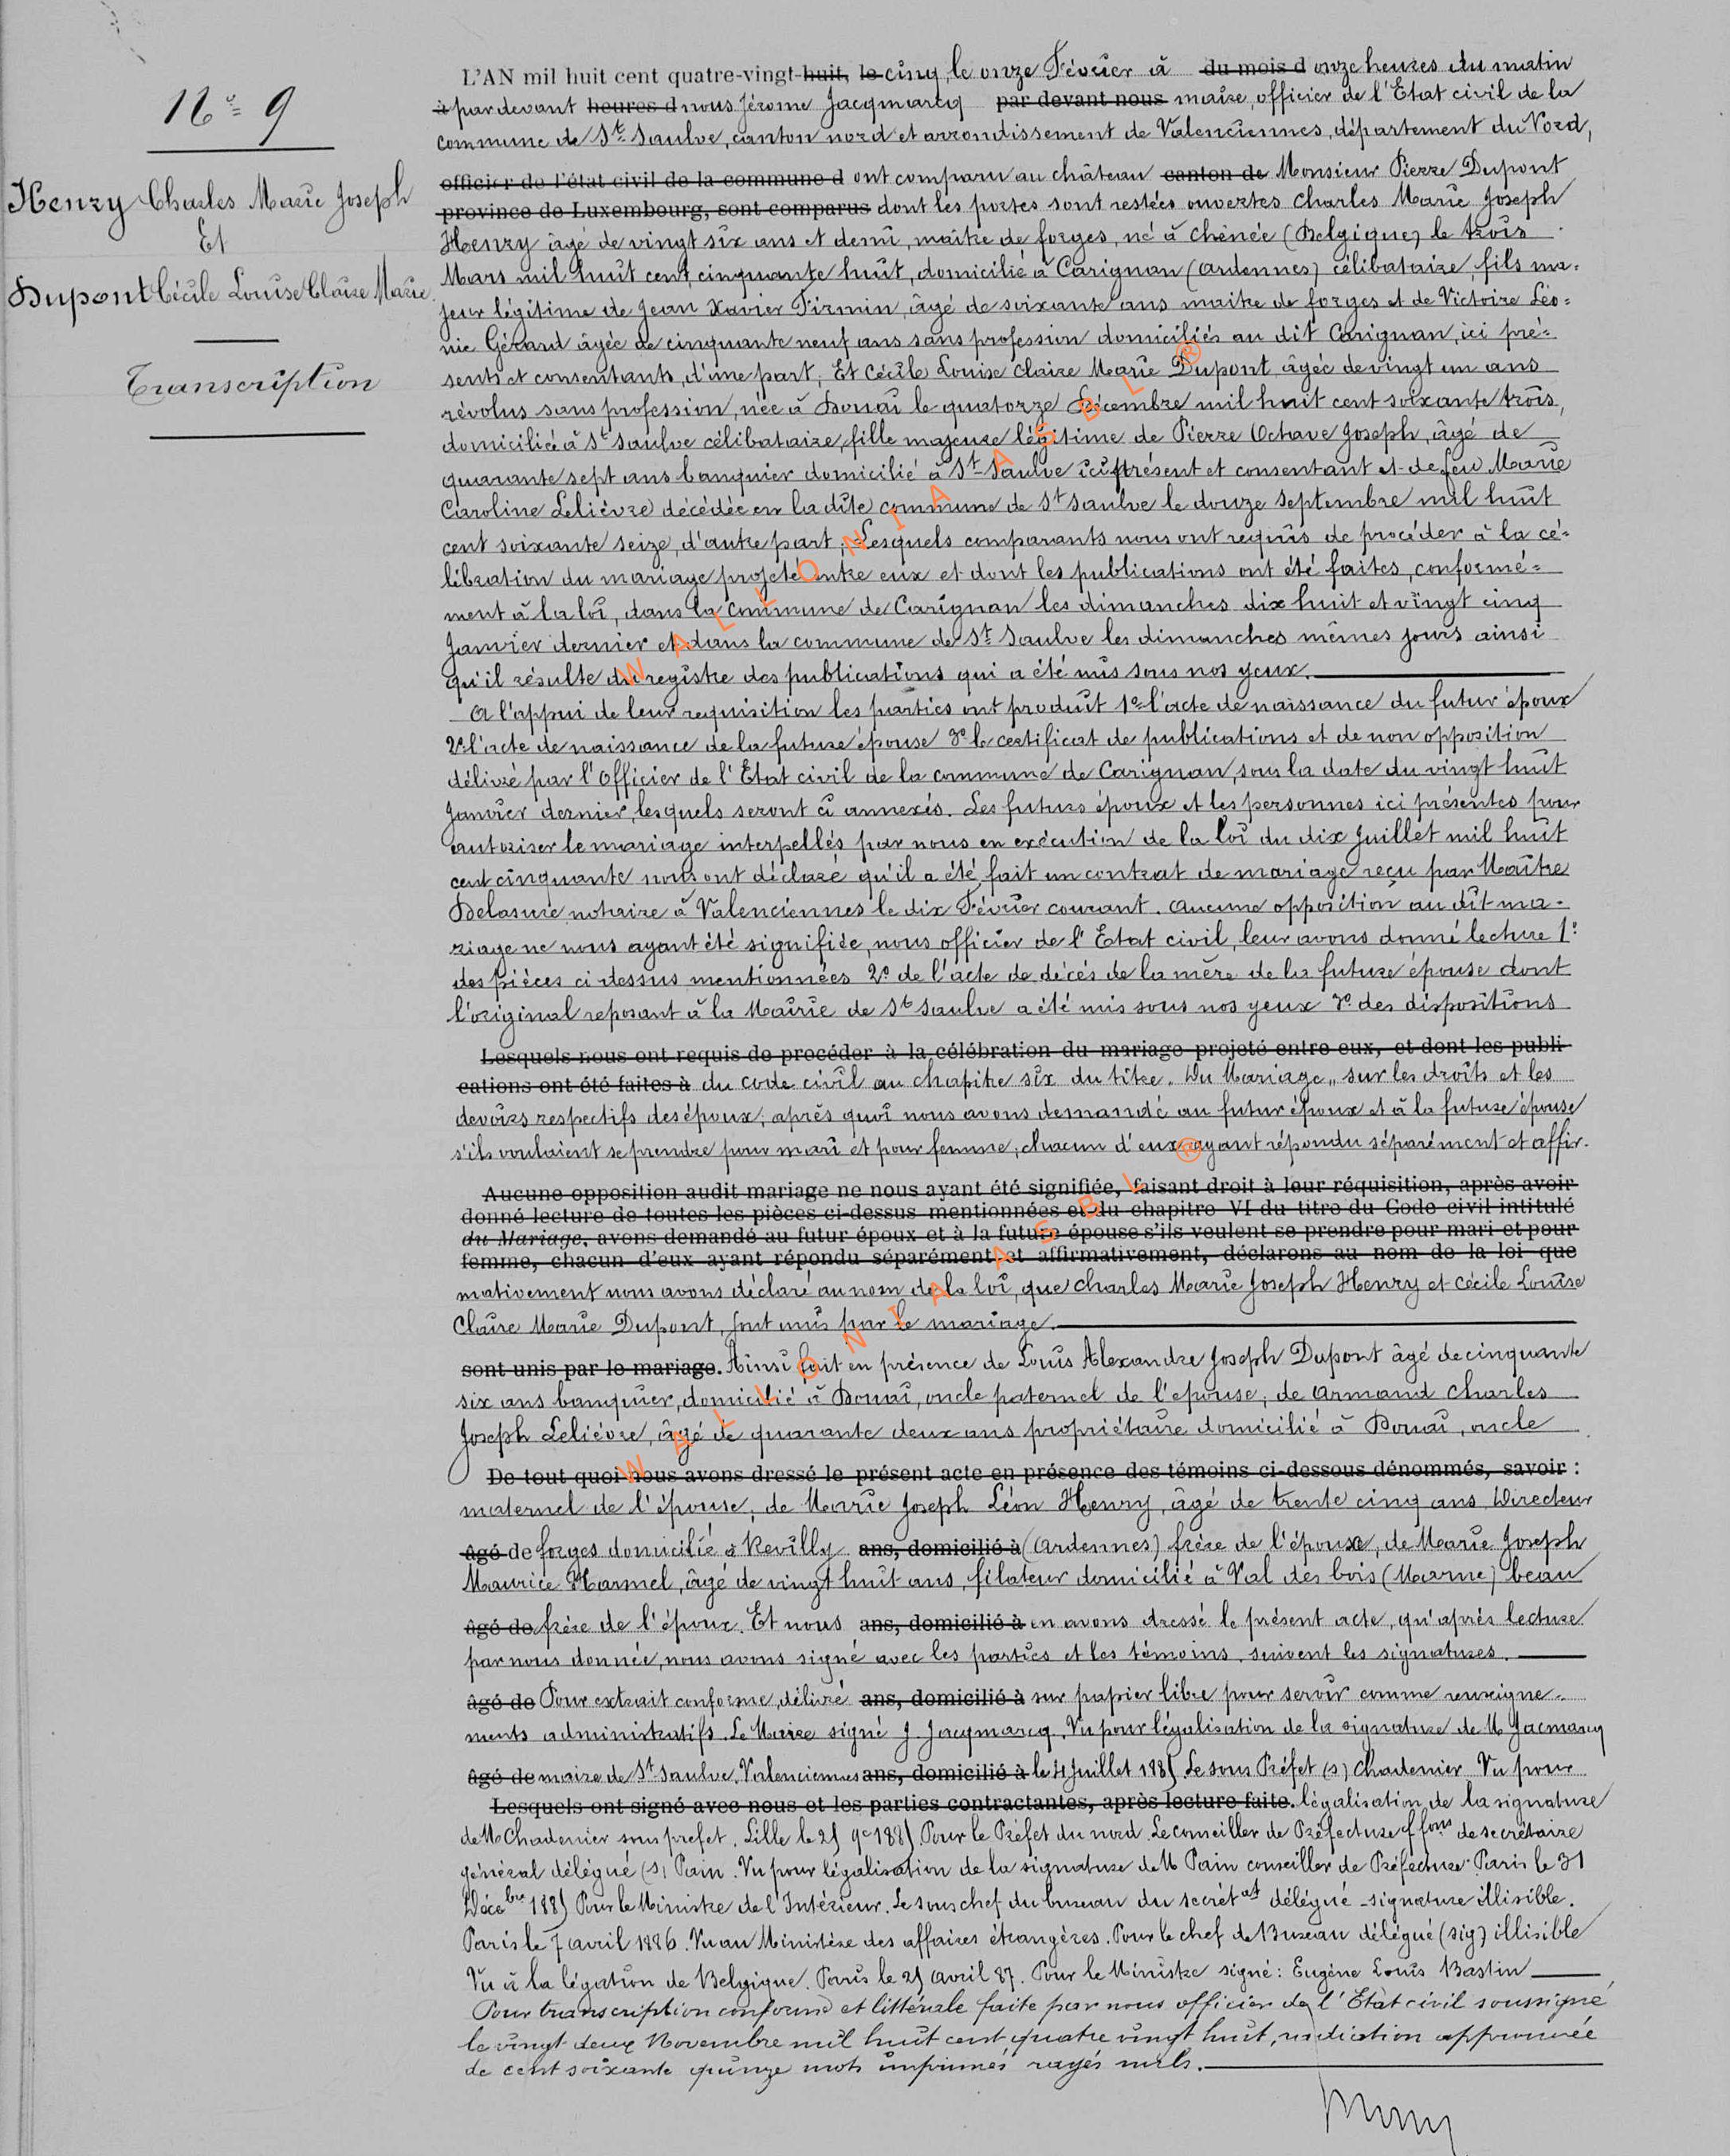 N° 9
Henry Charles Marie Joseph
Et
Dupont Cécile Louise Claire Marie
Transcription
L'AN mil huit cent quatre-vingt-huit, le cinq, le onze Février à du mois d onze heures du matin
à par devant heures d nous Jérome Jacqmarcq par devant nous maire, officier de l'Etat civil de la
commune de St Saulve, canton nord et arrondissement de Valenciennes, département du Nord,
officier de l'état civil de la commune d ont comparu au château canton de Monsieur Pierre Dupont
province de Luxembourg, sont comparus dont les portes sont restées ouvertes Charles Marie Joseph
Henry âgé de vingt six ans et demi, maître de forges, né à Chênée (Belgique) le trois
Mars mil huit cent cinquante huit, domicilié à Carignan (Ardennes) célibataire, fils ma=
jeur légitime de Jean Xavier Firmin, âgé de soixante ans maitre de forges et de Victoire Léo=
nie Gérard âgée de cinquante neuf ans sans profession domiciliés au dit Carignan, ici pré=
sents et consentants, d'une part; Et Cécile Louise Claire Marie Dupont, âgée de vingt un ans
révolus sans profession, née à Douai le quatorze Décembre mil huit cent soixante trois,
domiciliée à St Saulve célibataire, fille majeure légitime de Pierre Octave Joseph, âgé de
quarante sept ans banquier domicilié à St Saulve ici présent et consentant et de feu Marie
Caroline Lelièvre décédée en la dite commune de St Saulve le douze Septembre mil huit
cent soixante seize, d'autre part; Lesquels comparants nous ont requis de procéder à la cé=
lébration du mariage projeté entre eux et dont les publications ont été faites, conformé=
ment à la loi, dans la commune de Carignan les dimanches dix huit et vingt cinq
Janvier dernier et dans la commune de St Saulve les dimanches mêmes jours ainsi
qu'il résulte du registre des publications qui a été mis sous nos yeux.
A l'appui de leur requisition les parties ont produit 1° l'acte de naissance du futur époux
2° l'acte de naissance de la future épouse 3° le certificat de publications et de non opposition
délivré par l'Officier de l'Etat civil de la commune de Carignan, sous la date du vingt huit
Janvier dernier, lesquels seront ci annexés. Les futurs époux et les personnes ici présentes pour
autoriser le mariage interpellés par nous en exécution de la loi du dix Juillet mil huit
cent cinquante nous ont déclaré qu'il a été fait un contrat de mariage reçu par Maître
Delasurie notaire à Valenciennes le dix Février courant. Aucune opposition au dit ma-
riage ne nous ayant été signifiée, nous officier de l'Etat civil, leur avons donné lecture 1°
des pièces ci dessus mentionnées 2° de l'acte de décès de la mère de la future épouse dont
l'original reposant à la Mairie de St Saulve a été mis sous nos yeux 3° des dispositions
Lesquels nous ont requis de procéder à la célébration du mariage projeté entre eux, et dont les publi-
cations ont été faites à du code civil au chapitre six du titre "Du Mariage" sur les droits et les
devoirs respectifs des époux; après quoi nous avons demandé au futur époux et à la future épouse
s'ils voulaient se prendre pour mari et pour femme; chacun d'eux ayant répondu séparément et affir-
Aucune opposition audit mariage ne nous ayant été signifiée, faisant droit à leur réquisition, après avoir
donné lecture de toutes les pièces ci-dessus mentionnées et du chapitre VI du titre du Code civil intitulé
du Mariage, avons demandé au futur époux et à la future épouse s'ils veulent se prendre pour mari et pour
femme, chacun d'eux ayant répondu séparément et affirmativement, déclarons au nom de la loi que
mativement nous avons déclaré au nom de la loi, que Charles Marie Joseph Henry et Cécile Louise
Claire Marie Dupont, sont unis par le mariage.
sont unis par le mariage. Ainsi fait en présence de Louis Alexandre Joseph Dupont âgé de cinquante
six ans banquier, domicilié à Douai, oncle paternel de l'epouse; de Armand Charles
Joseph Lelièvre, âgé de quarante deux ans propriétaire domicilié à Douai, oncle
De tout quoi nous avons dressé le présent acte en présence des témoins ci-dessous dénommés, savoir :
maternel de l'épouse; de Marie Joseph Léon Henry, âgé de trente cinq ans, Directeur
âgé de forges domicilié à Revilly ans, domicilié à (Ardennes) frère de l'époux, de Marie Joseph
Maurice Harmel, âgé de vingt huit ans, filateur domicilié à Val des bois (Marne) beau
âgé de frère de l'époux. Et nous ans, domicilié à en avons dressé le présent acte, qu'après lecture
par nous donnée, nous avons signé avec les parties et les témoins. suivent les signatures.
âgé de Pour extrait conforme, délivré ans, domicilié à sur papier libre pour servir comme renseigne-
ments administratifs. Le Maire signé J. Jacqmarcq. Vu pour légalisation de la signature de M Jacmarcq
âgé de maire de St Saulve. Valenciennes ans, domicilié à le 4 Juillet 1885. Le sous Préfet (s) Chadenier Vu pour
Lesquels ont signé avec nous et les parties contractantes, après lecture faite. légalisation de la signature
de M Chadenier sous prefet. Lille le 25 9e 1885. Pour le Préfet du nord. Le conseiller de Préfecture ff fons de secrétaire
général délégué (s) Pain. Vu pour légalisation de la signature de M Pain conseiller de Préfecture. Paris le 31
Décbre 1885 Pour le Ministre de l'Intérieur. Le sous chef du bureau du secrétat délégué - signature illisible.
Paris le 7 avril 1886. Vu au Ministère des affaires étrangères. Pour le chef de Bureau délégué (sig) illisible
Vu à la légation de Belgique. Paris le 25 avril 87. Pour le Ministre signé: Eugène Louis Bastin
Pour transcription conforme et littérale faite par nous officier de l'Etat civil soussigné
le vingt deux Novembre mil huit cent quatre vingt huit, radiation approuvée
de cent soixante quinze mots imprimés rayés nuls.
WALLONIA ASBL ®
WALLONIA ASBL ®